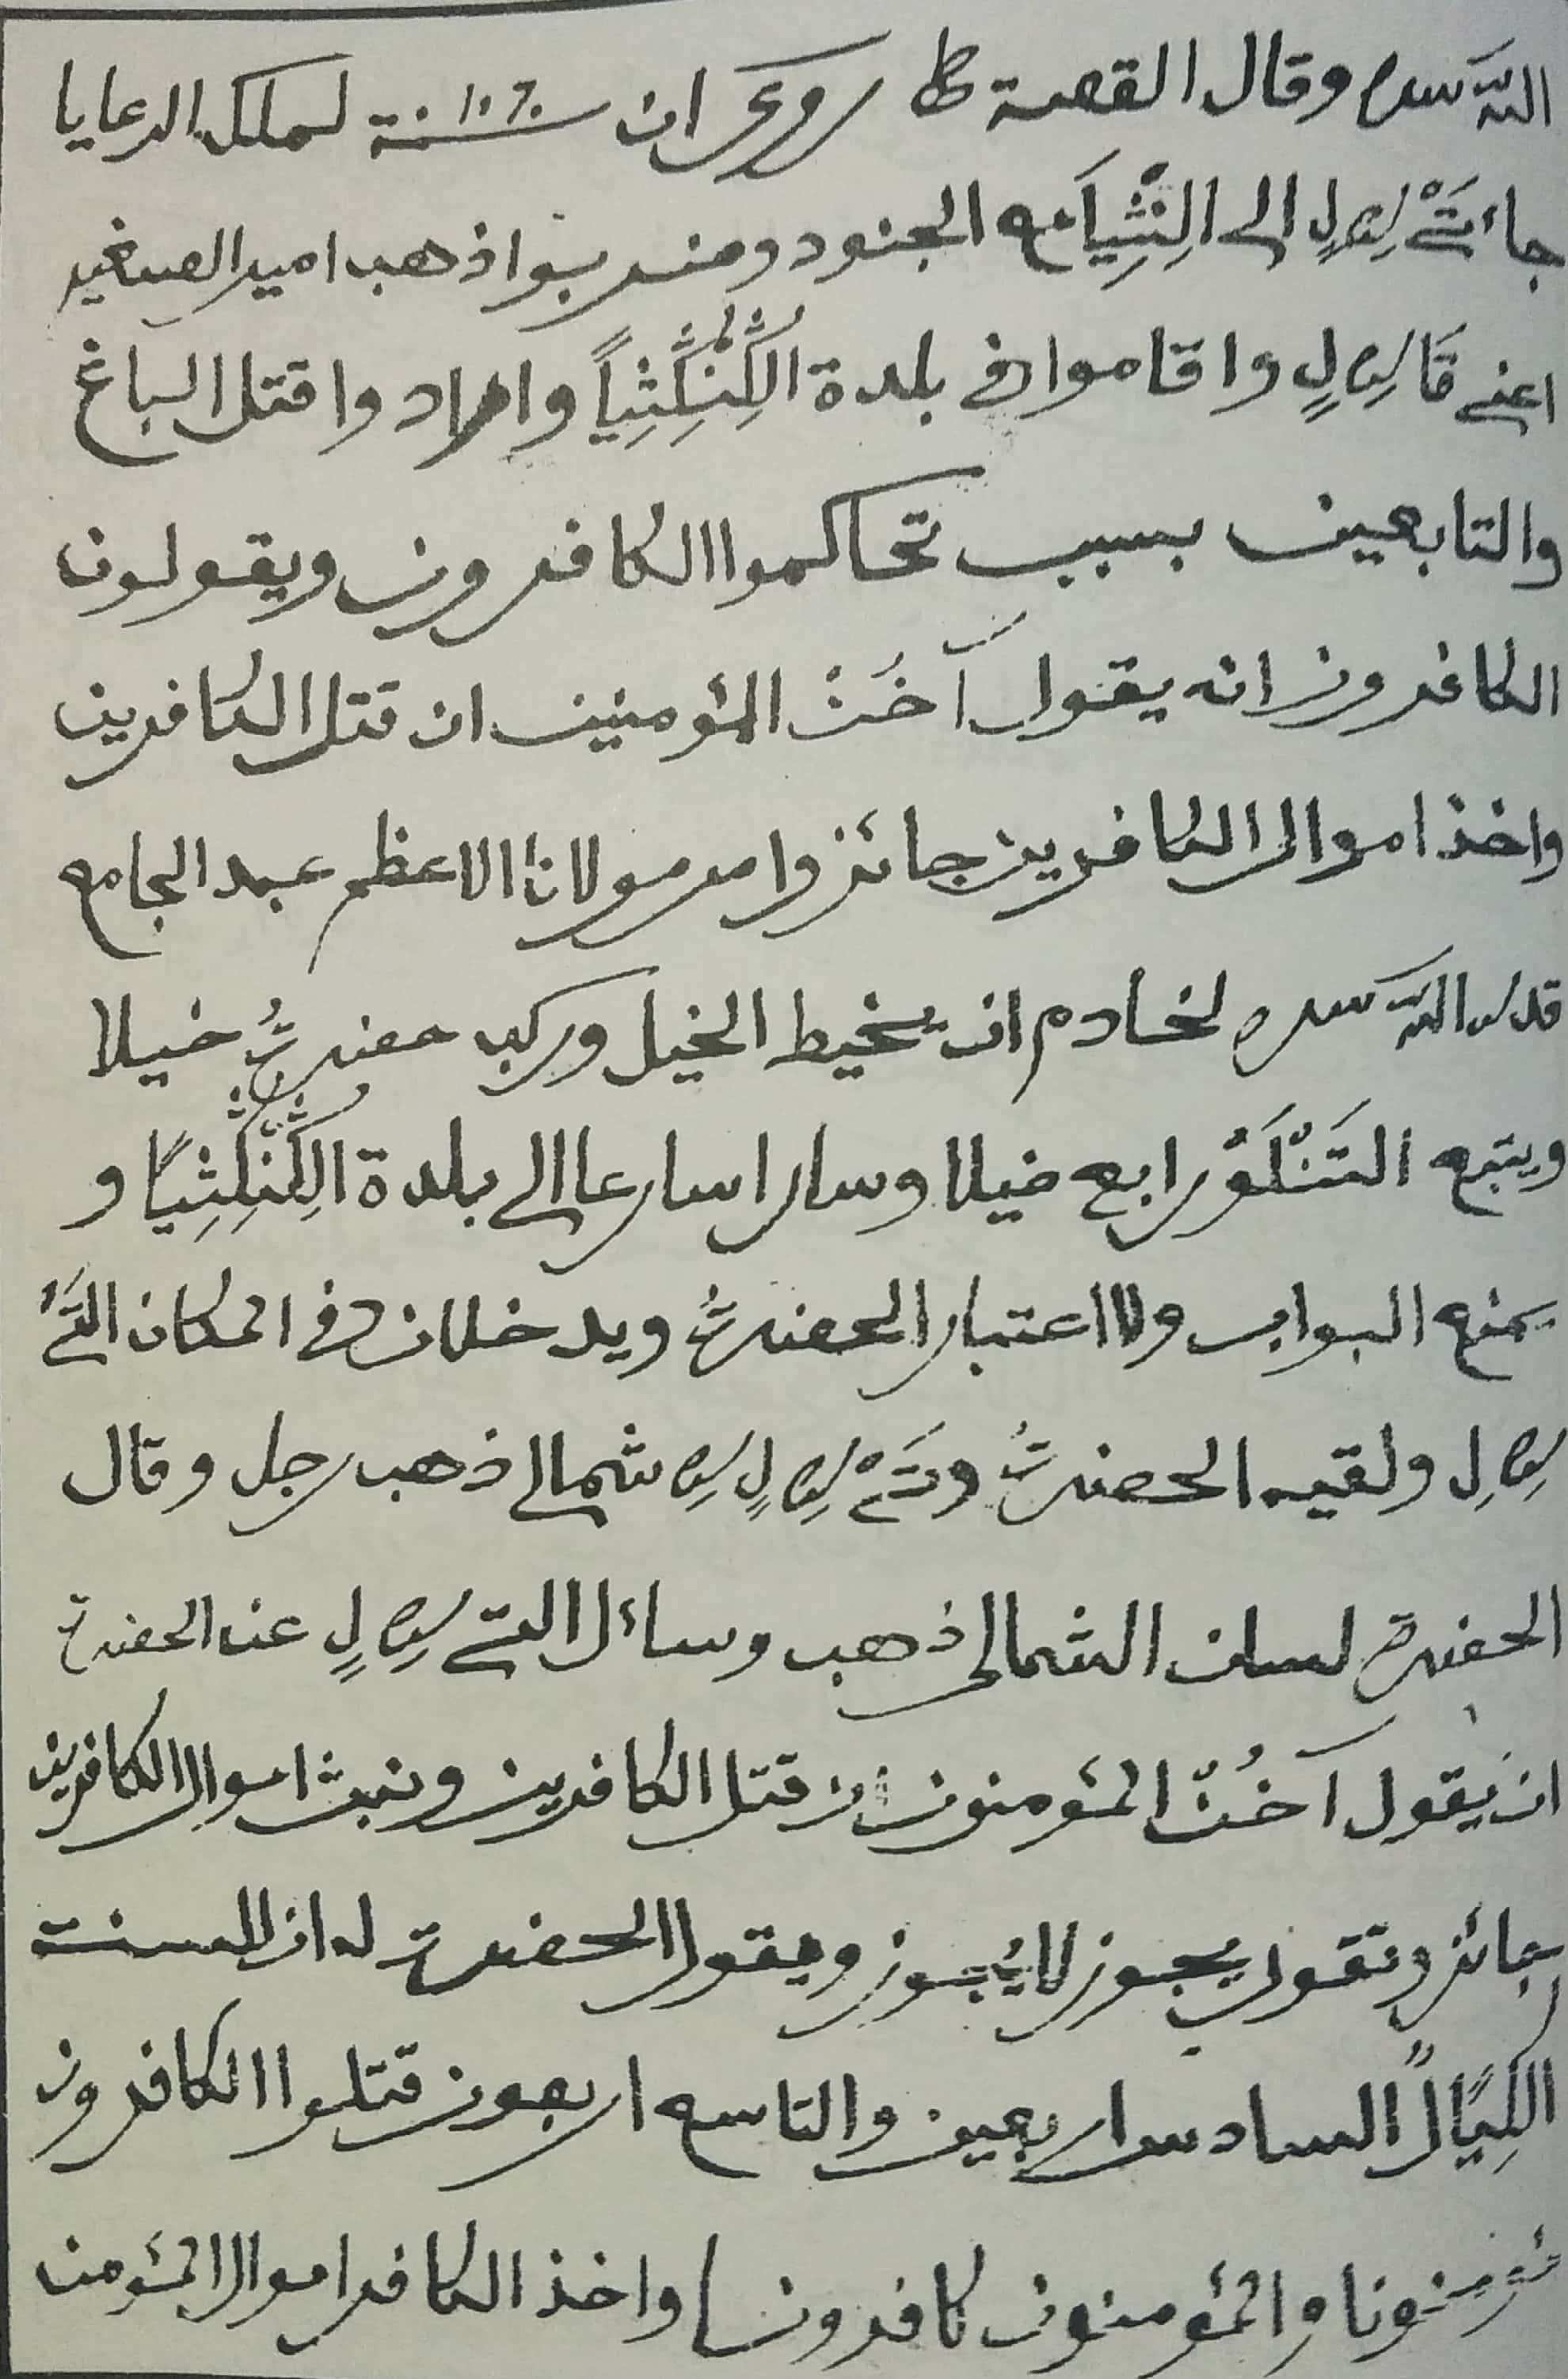 الله سره وقال القصة روى ان سنة لملك الرعايا
جائت الى الجنود ومنر بوا ذهب امير الصغير
اعنى واقاموا فى بلدة الكُنْكَنِثِياً واراد واقتل الباغ
والتابعين بسبب تحاكموا الكافرون ويقولون
الكافرون انه يقول آخُنْ المؤمنين ان قتل الكافرين
واخذ اموال الكافرين جائز وامر مولانا الاعظم عبد الجامع
قدس الله سره لخادم ان يخيط الخيل وركب حضرتُ خيلا
ويتبع رابع خيلا وسارا سارعا الى بلدة الكُنْكَنِثِيًا و
يمنع البواب ولا اعتبار الحضرتُ ويدخلان فى المكان
ولقيه الحضرتُ شمالى ذهب رجل وقال
الحضرة لسان الشمالى ذهب وسائل التى عن الحضرة
ان يقول آخُنْ المؤمنون ان قتل الكافرين ونبث اموال الكافرين
جائز وتقول يجوز لا يجوز ويقول الحضرت له ان للسنة
السادس اربعين والتاسع اربعون قتلوا الكافرون
مؤمنونا والمؤمنون كافرونا واخذ الكافر اموال المؤمن